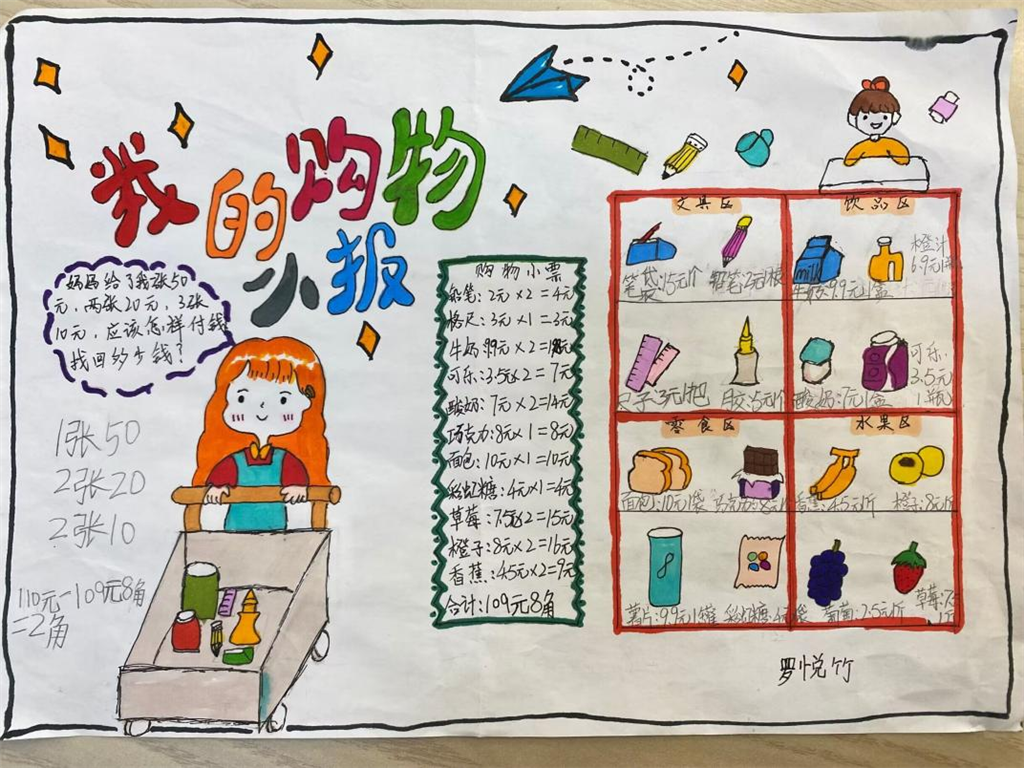 我的购物
小报
妈妈给了我张50
元,两张20元,3张
10元,应该怎样付钱
找回多少钱?
1张50
2张20
2张10
110元-109元8角
=2角
购物小票
铅笔:2元×2=4元
格尺:3元×1=3元
可乐:3.5元×2=7元
酸奶:7元×2=14元
巧克力:8元×1=8元
面包:10元×1=10元
彩虹糖:4元×1=4元
草莓:7.5×2=15元
橙子:8元×2=16元
香蕉:4.5元×2=9元
合计:109元8角
文具区
笔袋:15元1个
铅笔:2元1根
尺子:3元1把
胶:5元1个
饮品区
milk
牛奶:9.9元1盒
橙汁
6.9元1瓶
酸奶:7元1盒
可乐:
3.5元
1瓶
零食区
面包:10元1袋
巧克力:8元1个
薯片:9.9元1罐
彩虹糖:4元1袋
水果区
香蕉:4.5元1斤
橙子:8元1斤
葡萄:7.5元1斤
草莓:7.5
1斤
罗悦竹